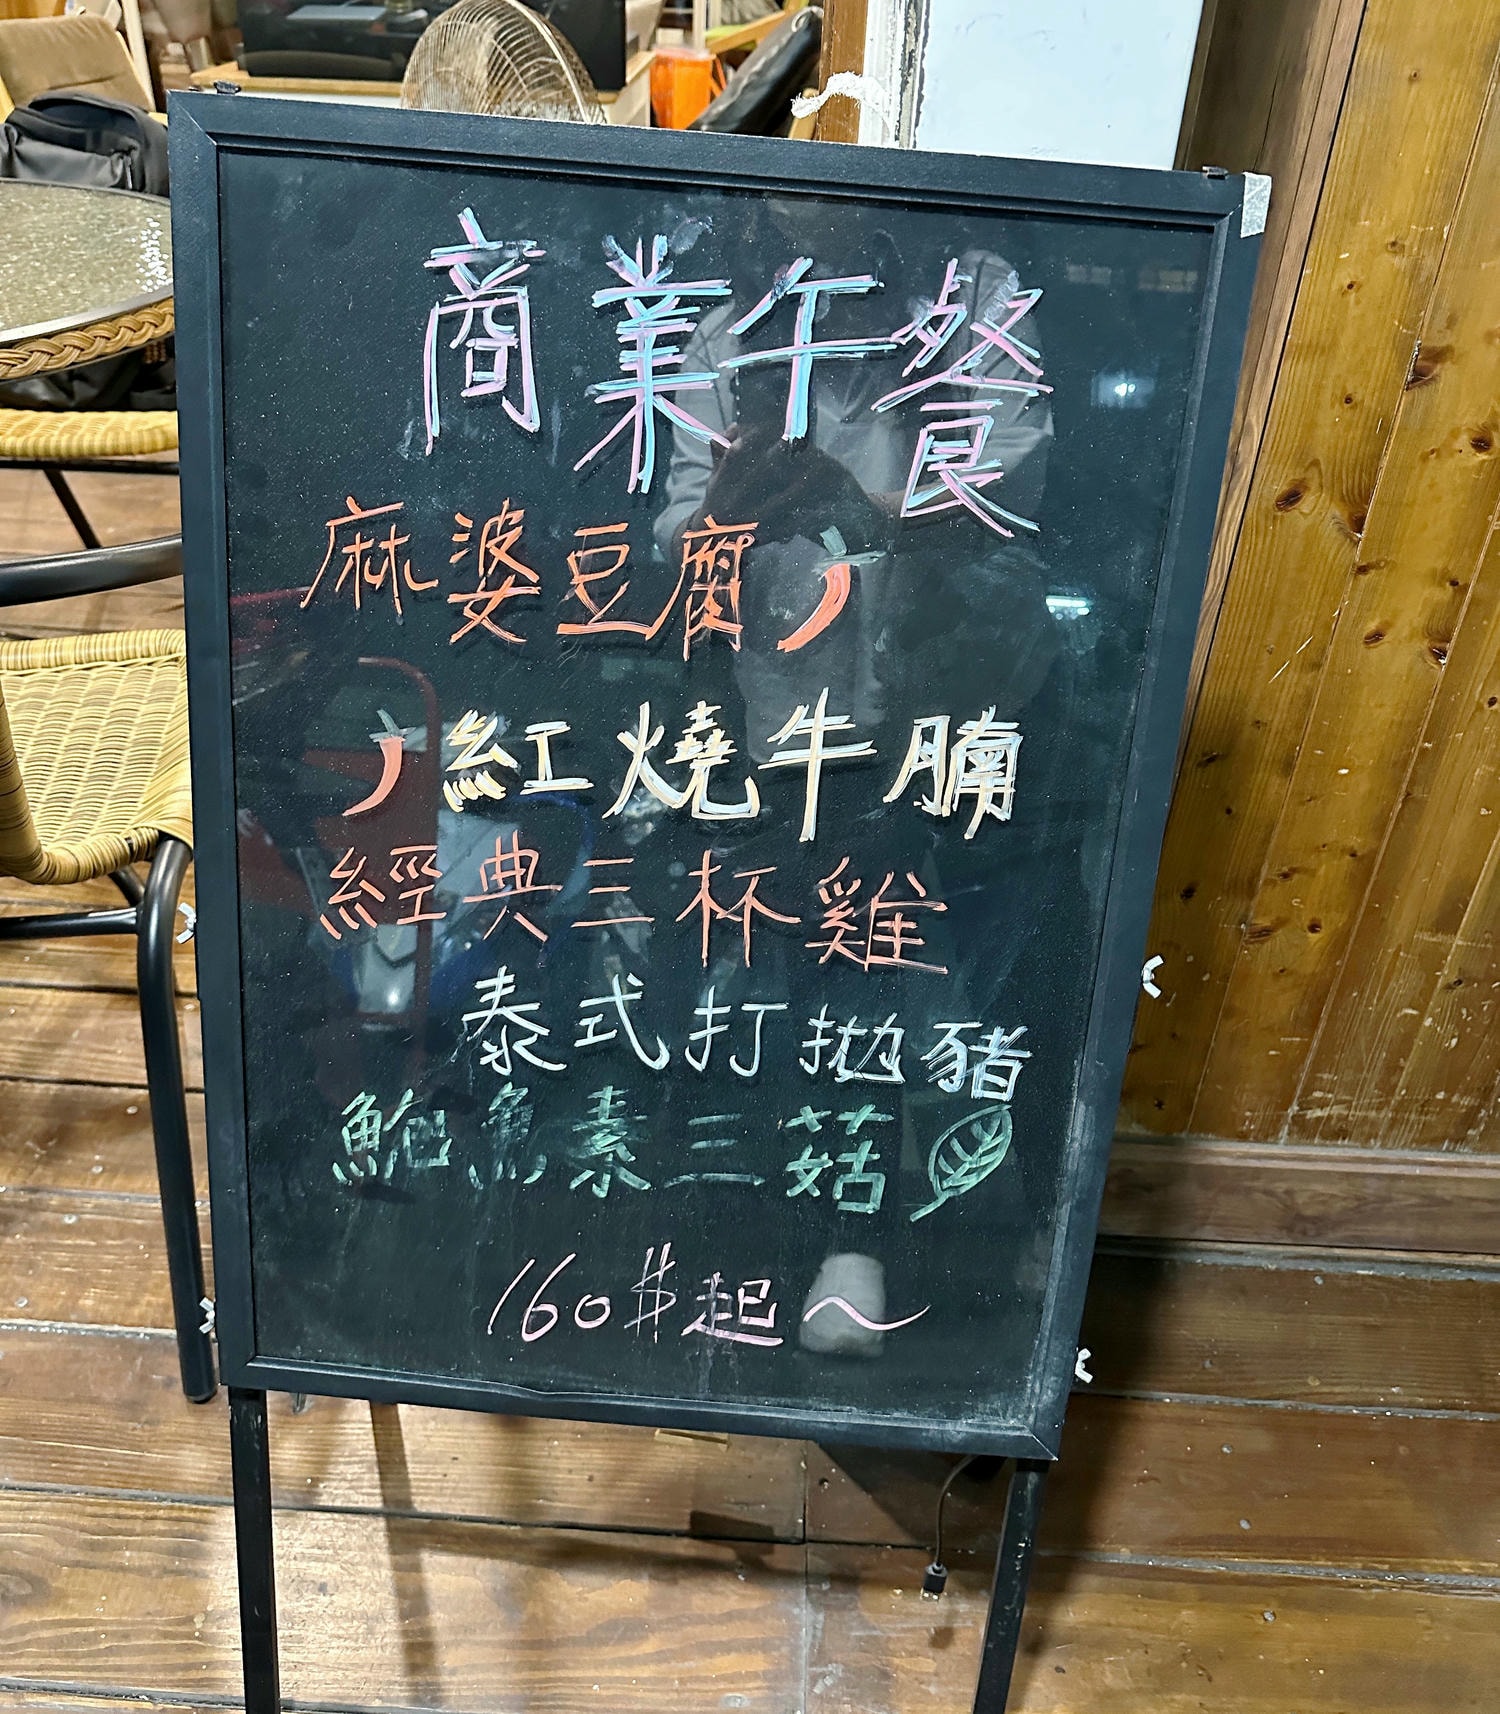 商業午餐
麻婆豆腐
紅燒牛腩
經典三杯雞
泰式打拋豬
鮑魚素三菇
160$起～